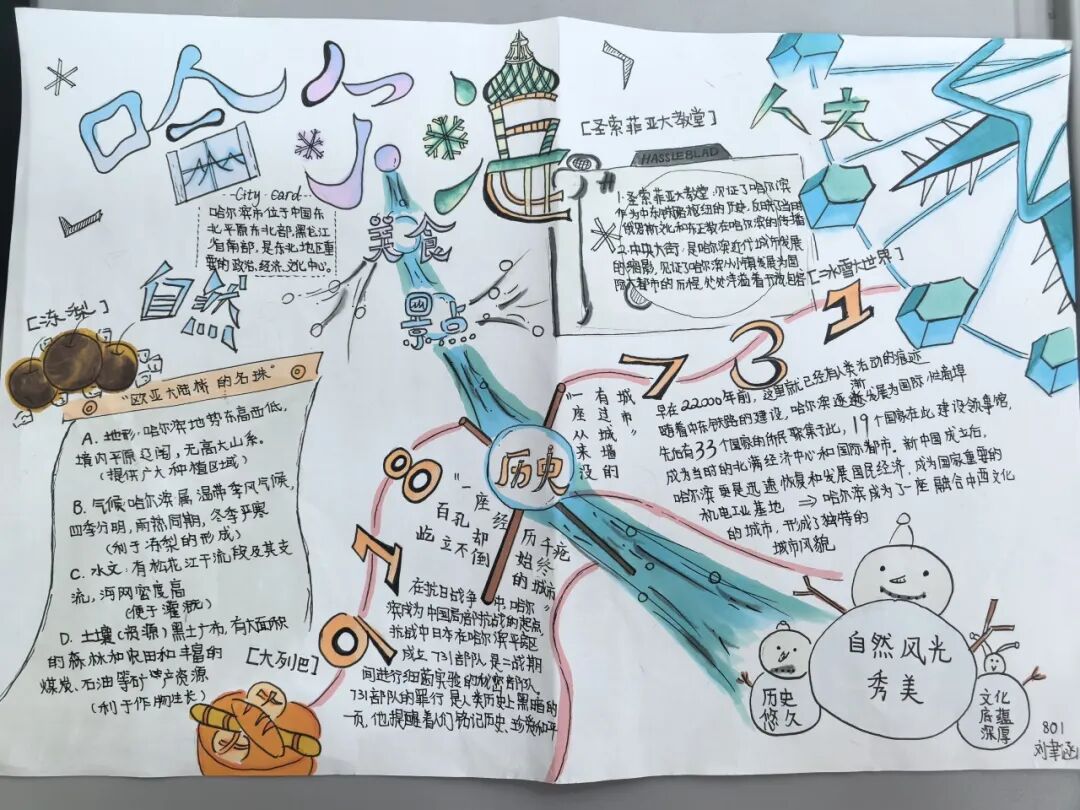 哈尔滨
冰
--City card--
哈尔滨市位于中国东
北平原东北部,黑龙江
省南部,是东北地区重
要的政治、经济、文化中心。
美食
自然
景点
[冻梨]
"欧亚大陆桥的名珠"
A. 地形:哈尔滨地势东高西低,
境内平原辽阔,无高大山系。
(提供广大种植区域)
B. 气候:哈尔滨属温带季风气候,
四季分明,雨热同期,冬季严寒
(利于冻梨的形成)
C. 水文:有松花江干流段及其支
流,河网密度高
(便于灌溉)
D. 土壤(资源)黑土广布,有大面积
的森林和农田和丰富的
煤炭、石油等矿产资源
(利于作物生长)
[大列巴]
[圣索菲亚大教堂]
HASSLEBLAD
1.圣索菲亚大教堂:见证了哈尔滨
作为中东铁路枢纽的历史,反映了当时
俄罗斯文化和东正教在哈尔滨的传播
2.中央大街:是哈尔滨近代城市发展
的缩影,见证了哈尔滨从小镇发展为国
际大都市的历程,处处洋溢着
人文
[冰雪大世界]
731
918
历史
"一座从来没有过城墙的城市"
早在22000年前,这里就已经有人类活动的痕迹
随着中东铁路的建设,哈尔滨逐渐发展为国际性商埠
先后有33个国家的侨民聚集于此,19个国家在此建设领事馆,
成为当时的北满经济中心和国际都市。新中国成立后,
哈尔滨更是迅速恢复和发展国民经济,成为国家重要的
机电工业基地 ⇒ 哈尔滨成为了一座融合中西文化
的城市,形成了独特的
城市风貌
"一座经历千疮
百孔却始终
屹立不倒的城市"
在抗日战争中,哈尔
滨成为中国局部抗战的起点,
抗战中日本在哈尔滨平房区
成立731部队,是二战期
间进行细菌实验的秘密部队。
731部队的罪行是人类历史上黑暗的
一页,他提醒着人们铭记历史、珍爱和平
自然风光
秀美
历史
悠久
文化
底蕴
深厚
801